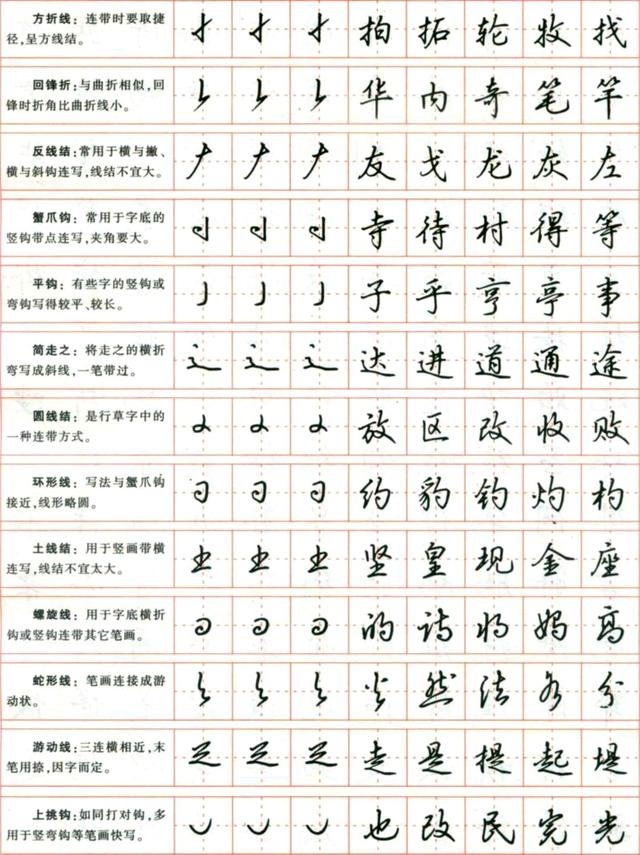 方折线：连带时要取捷
径，呈方线结。
拍 拓 轮 牧 找
回锋折：与曲折相似，回
锋时折角比曲折线小。
华 内 奇 笔 竿
反线结：常用于横与撇、
横与斜钩连写，线结不宜大。
友 戈 龙 灰 左
蟹爪钩：常用于字底的
竖钩带点连写，夹角要大。
寺 待 村 得 等
平钩：有些字的竖钩或
弯钩写得较平、较长。
子 乎 亨 亭 事
简走之：将走之的横折
弯写成斜线，一笔带过。
达 进 道 通 途
圆线结：是行草字中的
一种连带方式。
放 区 改 收 败
环形线：写法与蟹爪钩
接近，线形略圆。
约 豹 钓 灼 杓
土线结：用于竖画带横
连写，线结不宜太大。
坚 皇 现 金 座
螺旋线：用于字底横折
钩或竖钩连带其它笔画。
的 诗 将 妈 高
蛇形线：笔画连接成游
动状。
火 然 法 分
游动线：三连横相近，末
笔用捺，因字而定。
走 是 提 起 堤
上挑钩：如同打对钩，多
用于竖弯钩等笔画快写。
也 改 民 完 光